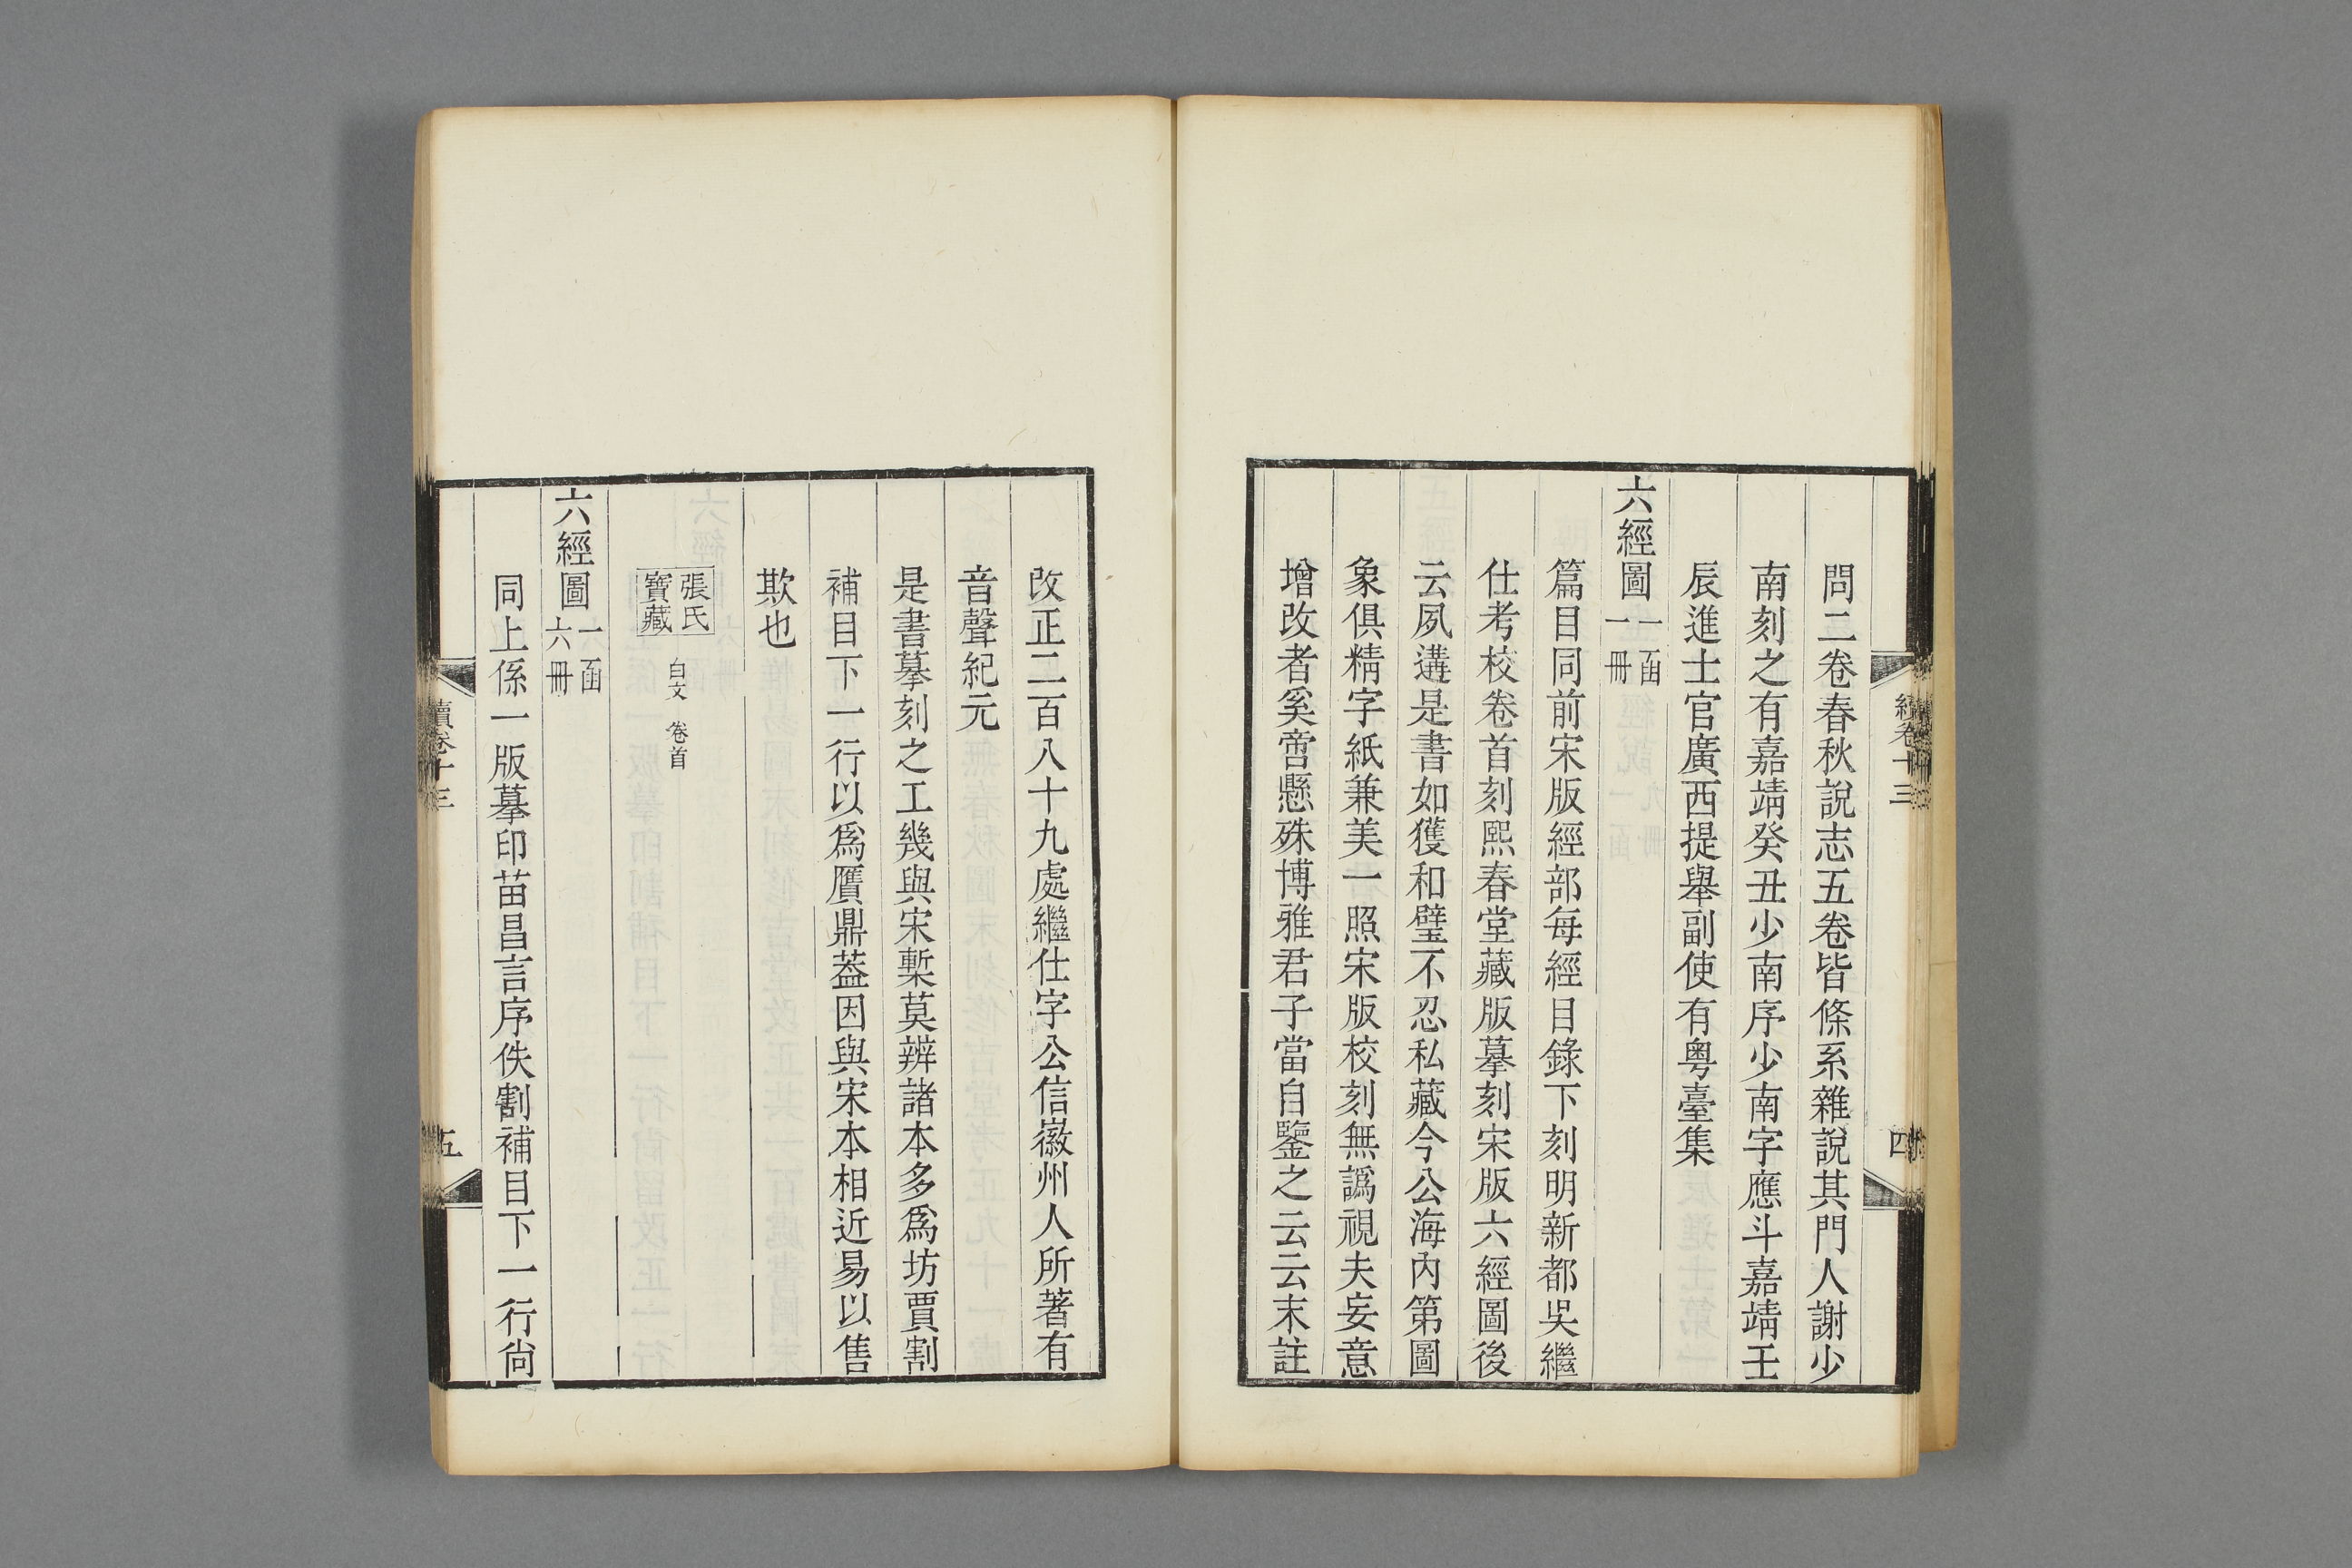 問二卷春秋說志五卷皆條系雜說其門人謝少
南刻之有嘉靖癸丑少南序少南字應斗嘉靖壬
辰進士官廣西提舉副使有粤臺集
六經圖一函一冊
篇目同前宋版經部每經目錄下刻明新都吳繼
仕考校卷首刻熙春堂藏版摹刻宋版六經圖後
云夙遘是書如獲和璧不忍私藏今公海內第圖
象俱精字紙兼美一照宋版校刻無譌視夫妄意
增改者奚啻懸殊博雅君子當自鑒之云云末註
卷十三
四
改正二百八十九處繼仕字公信徽州人所著有
音聲紀元
是書摹刻之工幾與宋槧莫辨諸本多爲坊賈割
補目下一行以爲贋鼎葢因與宋本相近易以售
欺也
張氏寶藏 白文 卷首
六經圖一函六冊
同上係一版摹印苗昌言序佚割補目下一行尙
續卷十三
五